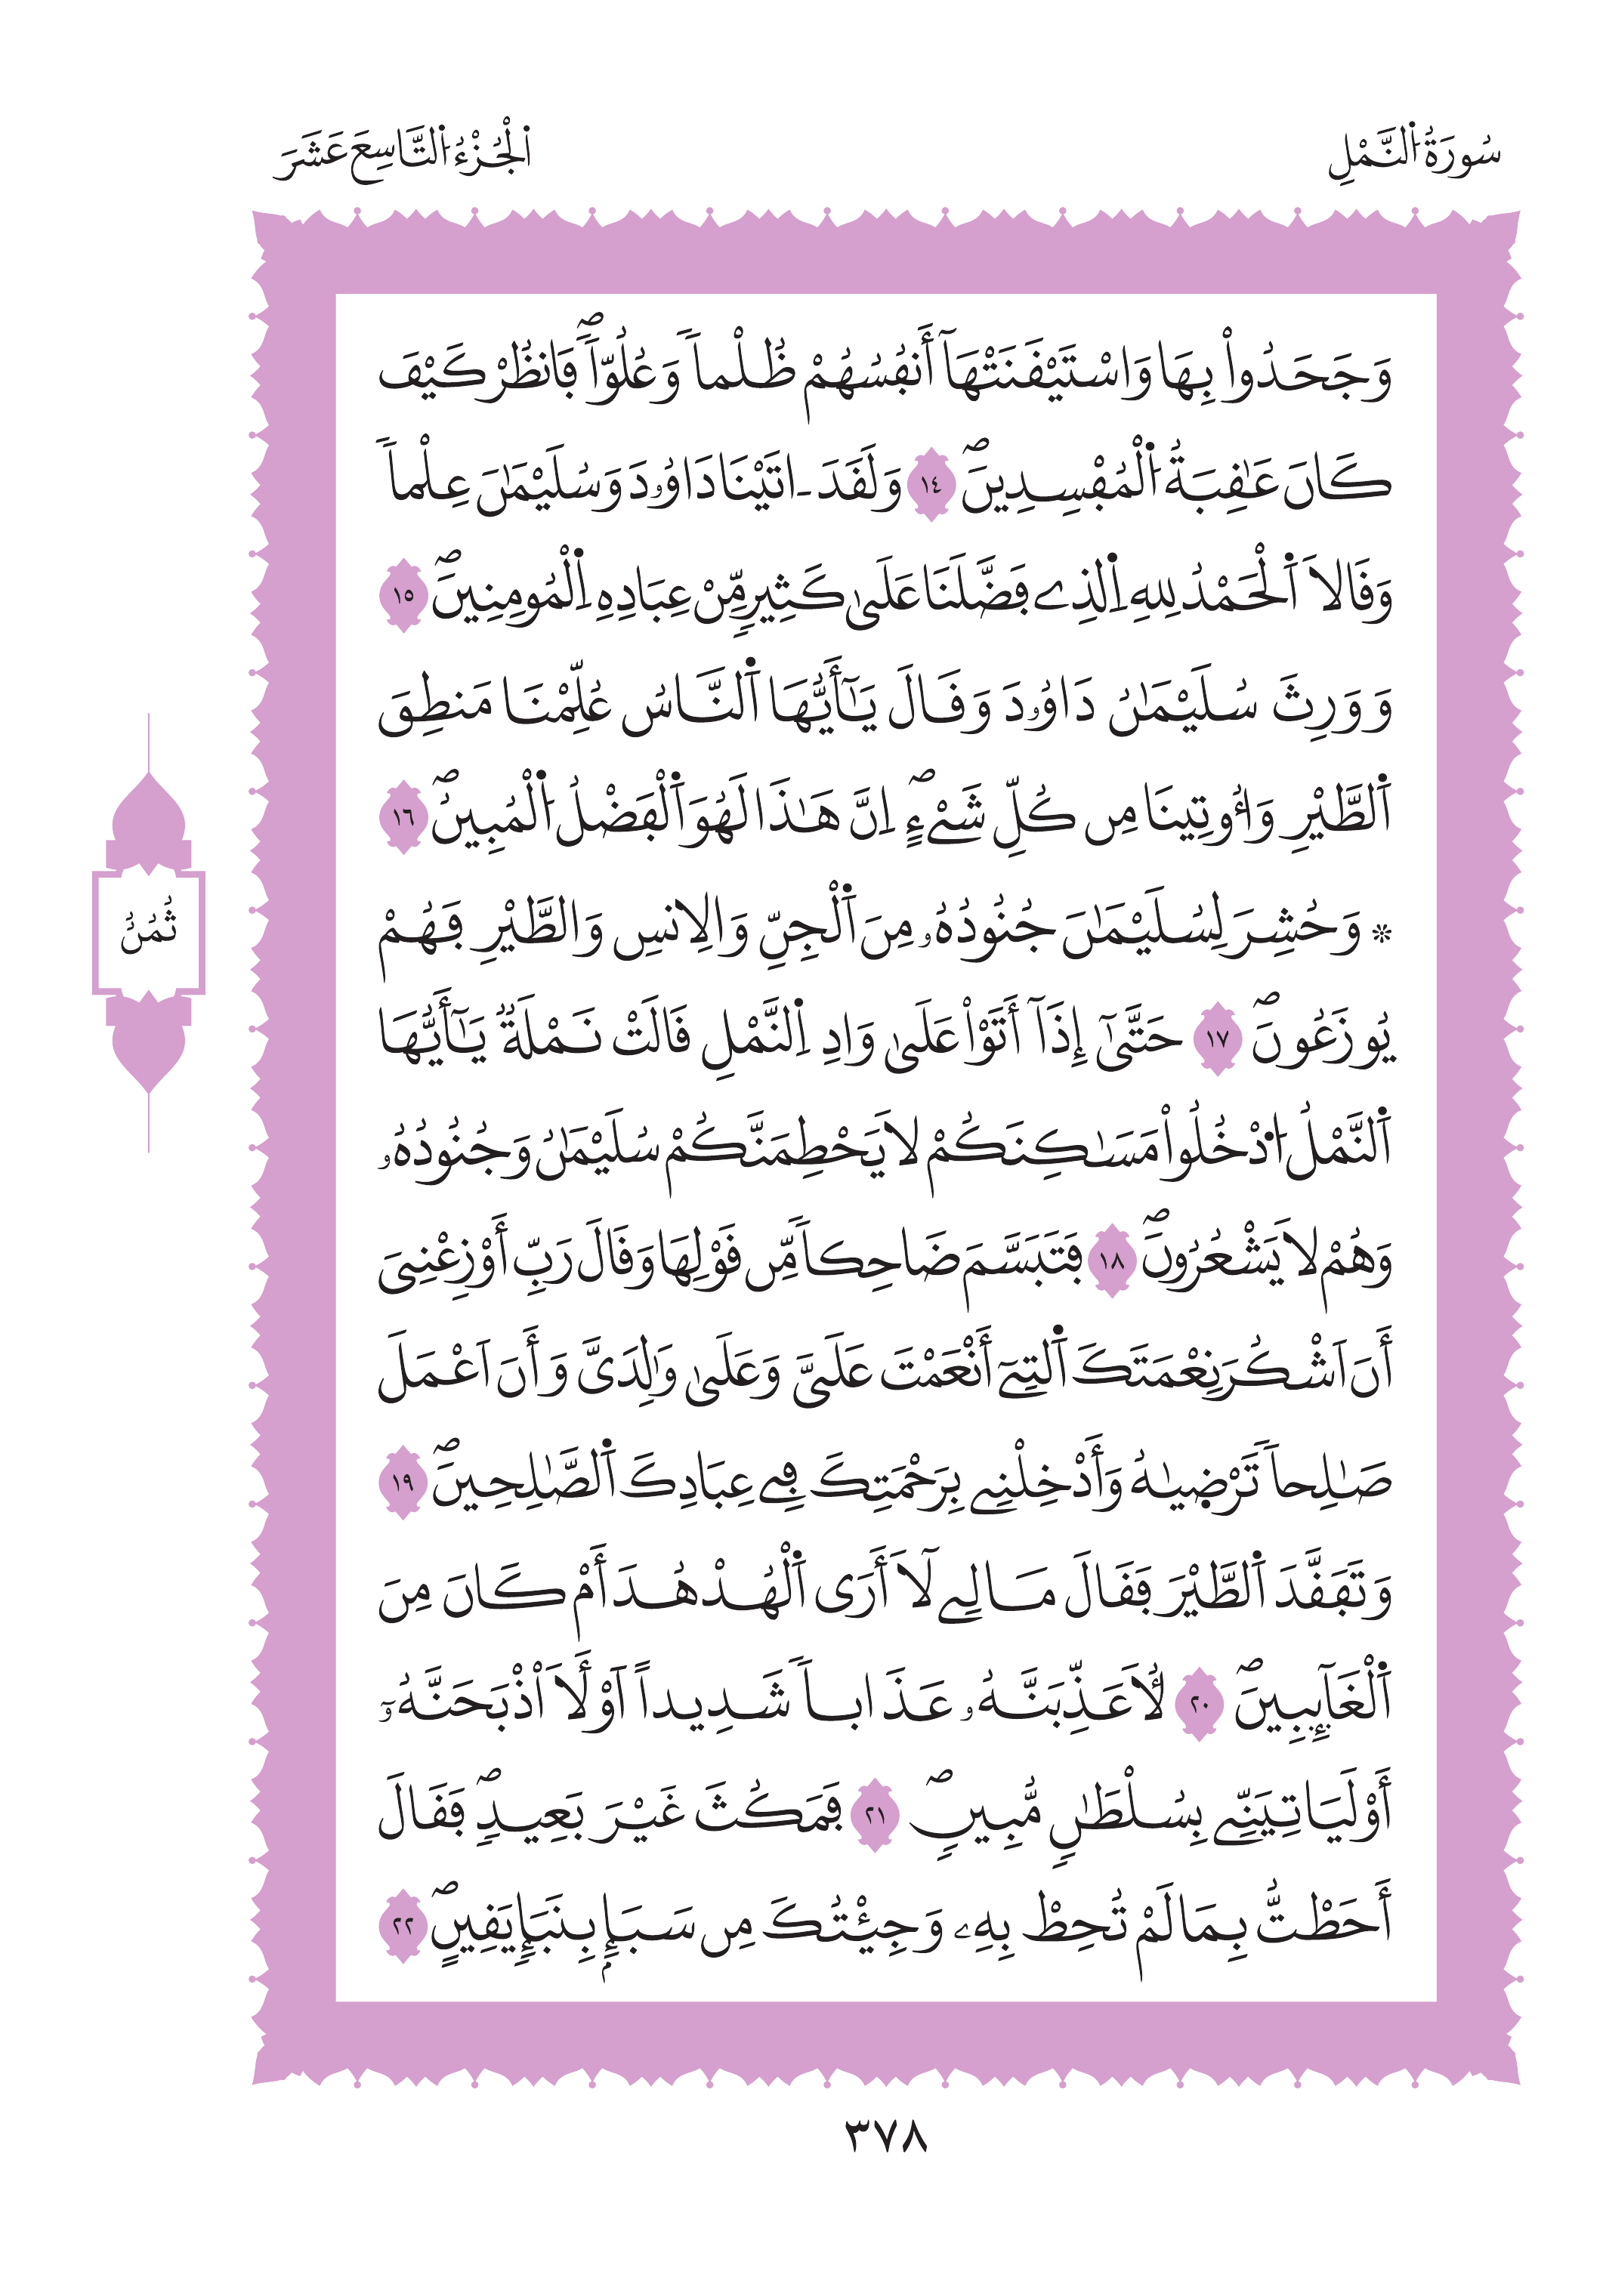 سُورَةُ اُ۬لنَّمْلِ
اُ۬لْجُزْءُ اُ۬لتَّاسِعَ عَشَرَ
وَجَحَدُواْ بِهَا وَاسْتَيْقَنَتْهَآ أَنفُسُهُمْ ظُلْماٗ وَعُلُوّاٗۖ فَانظُرْ كَيْفَ
كَانَ عَٰقِبَةُ اُ۬لْمُفْسِدِينَۖ ١٤ وَلَقَدَ اٰتَيْنَا دَاوُۥدَ وَسُلَيْمَٰنَ عِلْماٗ
وَقَالَا اَ۬لْحَمْدُ لِلهِ اِ۬لذِے فَضَّلَنَا عَلَىٰ كَثِيرٖ مِّنْ عِبَادِهِ اِ۬لْمُومِنِينَۖ ١٥
وَوَرِثَ سُلَيْمَٰنُ دَاوُۥدَ وَقَالَ يَٰٓأَيُّهَا اَ۬لنَّاسُ عُلِّمْنَا مَنطِقَ
اَ۬لطَّيْرِ وَأُوتِينَا مِن كُلِّ شَےْءٍۖ اِنَّ هَٰذَا لَهُوَ اَ۬لْفَضْلُ اُ۬لْمُبِينُۖ ١٦
۞ وَحُشِرَ لِسُلَيْمَٰنَ جُنُودُهُۥ مِنَ اَ۬لْجِنِّ وَالِانسِ وَالطَّيْرِ فَهُمْ
يُوزَعُونَۖ ١٧ حَتَّىٰٓ إِذَآ أَتَوْاْ عَلَىٰ وَادِ اِ۬لنَّمْلِ قَالَتْ نَمْلَةٞ يَٰٓأَيُّهَا
اَ۬لنَّمْلُ اُ۟دْخُلُواْ مَسَٰكِنَكُمْ لَا يَحْطِمَنَّكُمْ سُلَيْمَٰنُ وَجُنُودُهُۥ
وَهُمْ لَا يَشْعُرُونَۖ ١٨ فَتَبَسَّمَ ضَاحِكاٗ مِّن قَوْلِهَا وَقَالَ رَبِّ أَوْزِعْنِىَ
أَنَ اَشْكُرَ نِعْمَتَكَ اَ۬لتِےٓ أَنْعَمْتَ عَلَىَّ وَعَلَىٰ وَٰلِدَىَّ وَأَنَ اَعْمَلَ
صَٰلِحاٗ تَرْض۪يٰهُ وَأَدْخِلْنِے بِرَحْمَتِكَ فِے عِبَادِكَ اَ۬لصَّٰلِحِينَۖ ١٩
وَتَفَقَّدَ اَ۬لطَّيْرَ فَقَالَ مَا لِے لَآ أَرَى اَ۬لْهُدْهُدَ أَمْ كَانَ مِنَ
اَ۬لْغَآئِبِينَۖ ٢٠ لَأُعَذِّبَنَّهُۥ عَذَاباٗ شَدِيداً اَوْ لَأَاْذْبَحَنَّهُۥٓ
أَوْ لَيَاتِيَنِّے بِسُلْطَٰنٖ مُّبِينٖۖ ٢١ فَمَكُثَ غَيْرَ بَعِيدٖۖ فَقَالَ
أَحَطتُّ بِمَا لَمْ تُحِطْ بِهِۦ وَجِئْتُكَ مِن سَبَإِۢ بِنَبَإٖ يَقِينٍۖ ٢٢
ثُمُنُ
٣٧٨